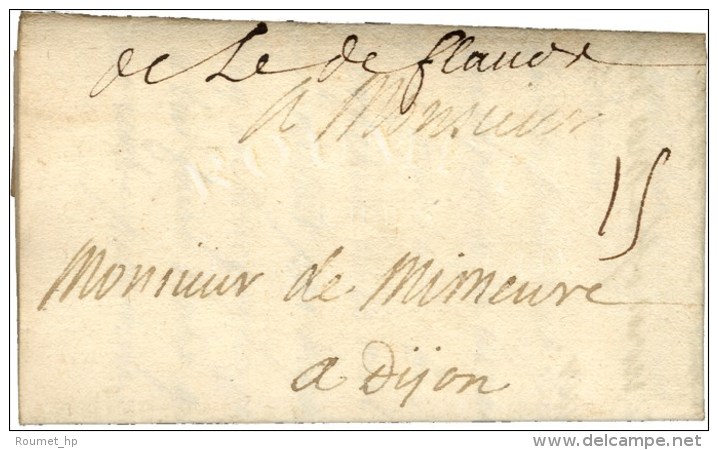 de Le de flandre
a Monsieur
15
Monsieur de Mimeure
a Dijon
Roumet_hp
delcampe.net